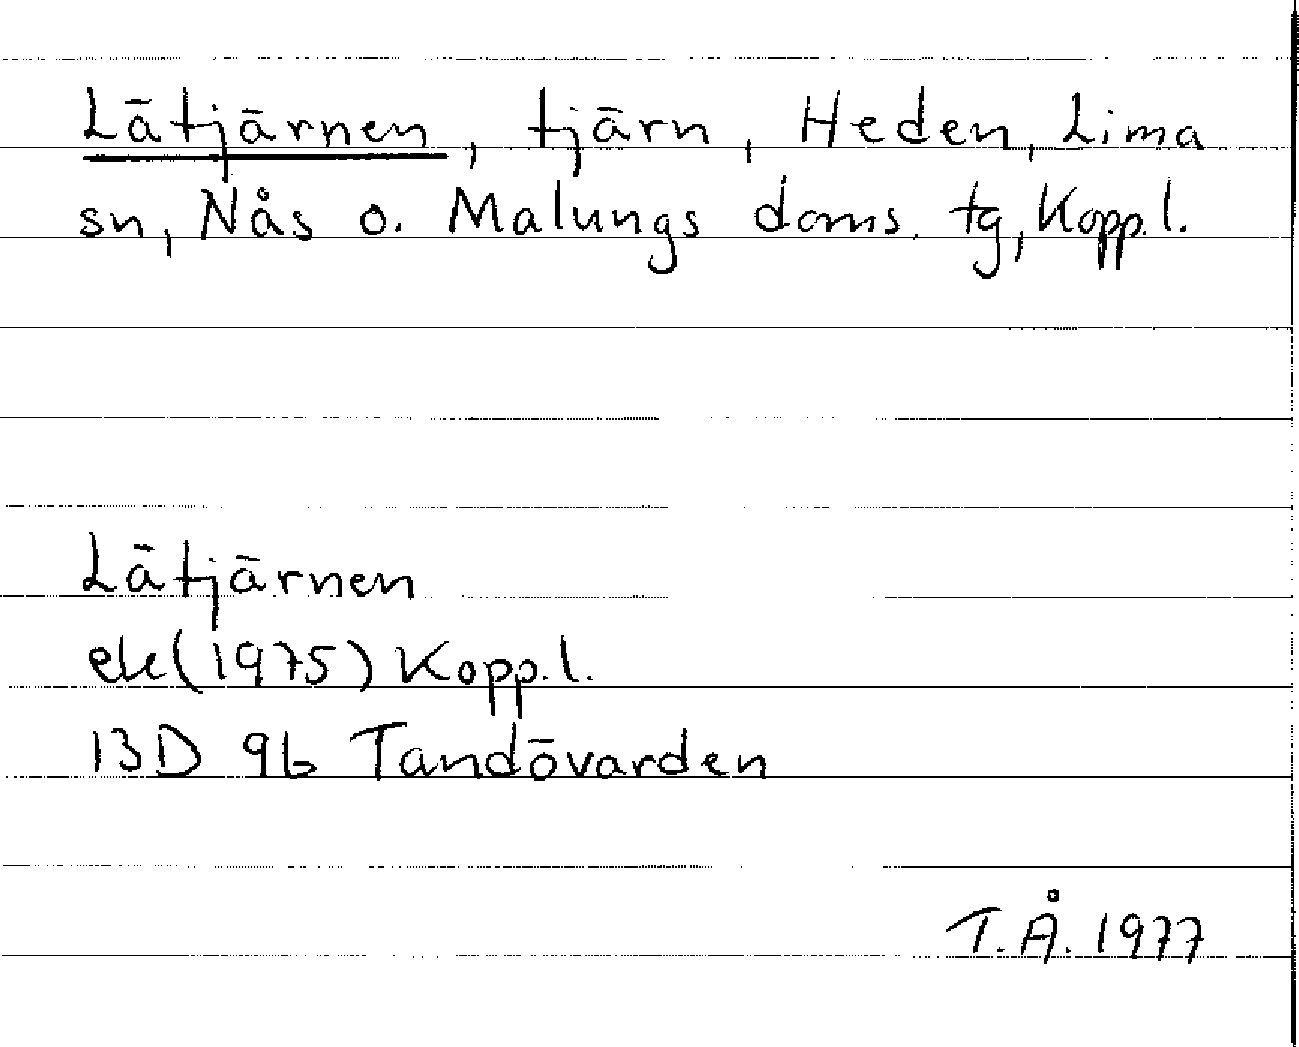 Lätjärnen, tjärn, Heden, Lima
sn, Nås o. Malungs doms. tg, Kopp.l.
Lätjärnen
ek (1975) Kopp.l.
13D 9b Tandövarden
T.Å. 1977